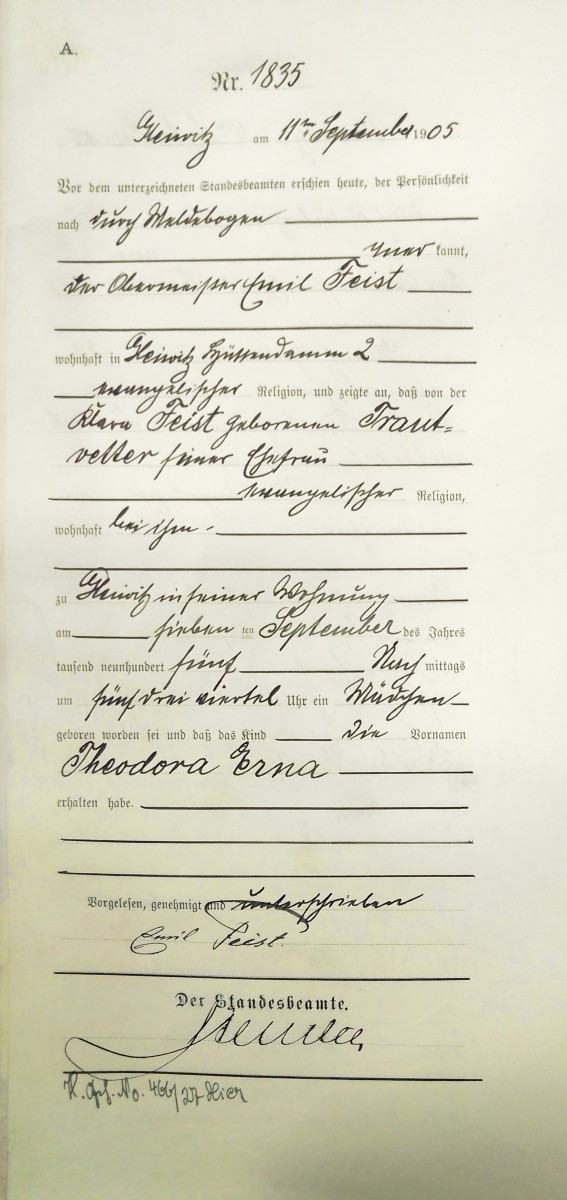 A.
Nr. 1835
Gleiwitz am 11ten September 1905
Vor dem unterzeichneten Standesbeamten erschien heute, der Persönlichkeit
nach durch Meldebogen
aner kannt,
der Obermeister Emil Feist
wohnhaft in Gleiwitz Hüttendamm 2
evangelischer Religion, und zeigte an, daß von der
Klara Feist geborenen Traut=
vetter seiner Ehefrau
evangelischer Religion,
wohnhaft bei ihm.
zu Gleiwitz in seiner Wohnung
am sieben ten September des Jahres
tausend neunhundert fünf Nach mittags
um fünf drei viertel Uhr ein Mädchen
geboren worden sei und daß das Kind die Vornamen
Theodora Erna
erhalten habe.
Vorgelesen, genehmigt und unterschrieben
Emil Feist.
Der Standesbeamte.
No. 466/27 Hier